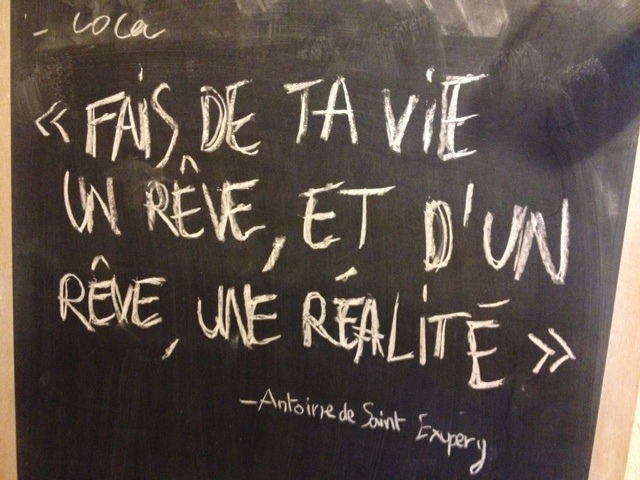 - coca
« FAIS DE TA VIE
UN RÊVE, ET D'UN
RÊVE, UNE RÉALITÉ »
- Antoine de Saint Exupéry